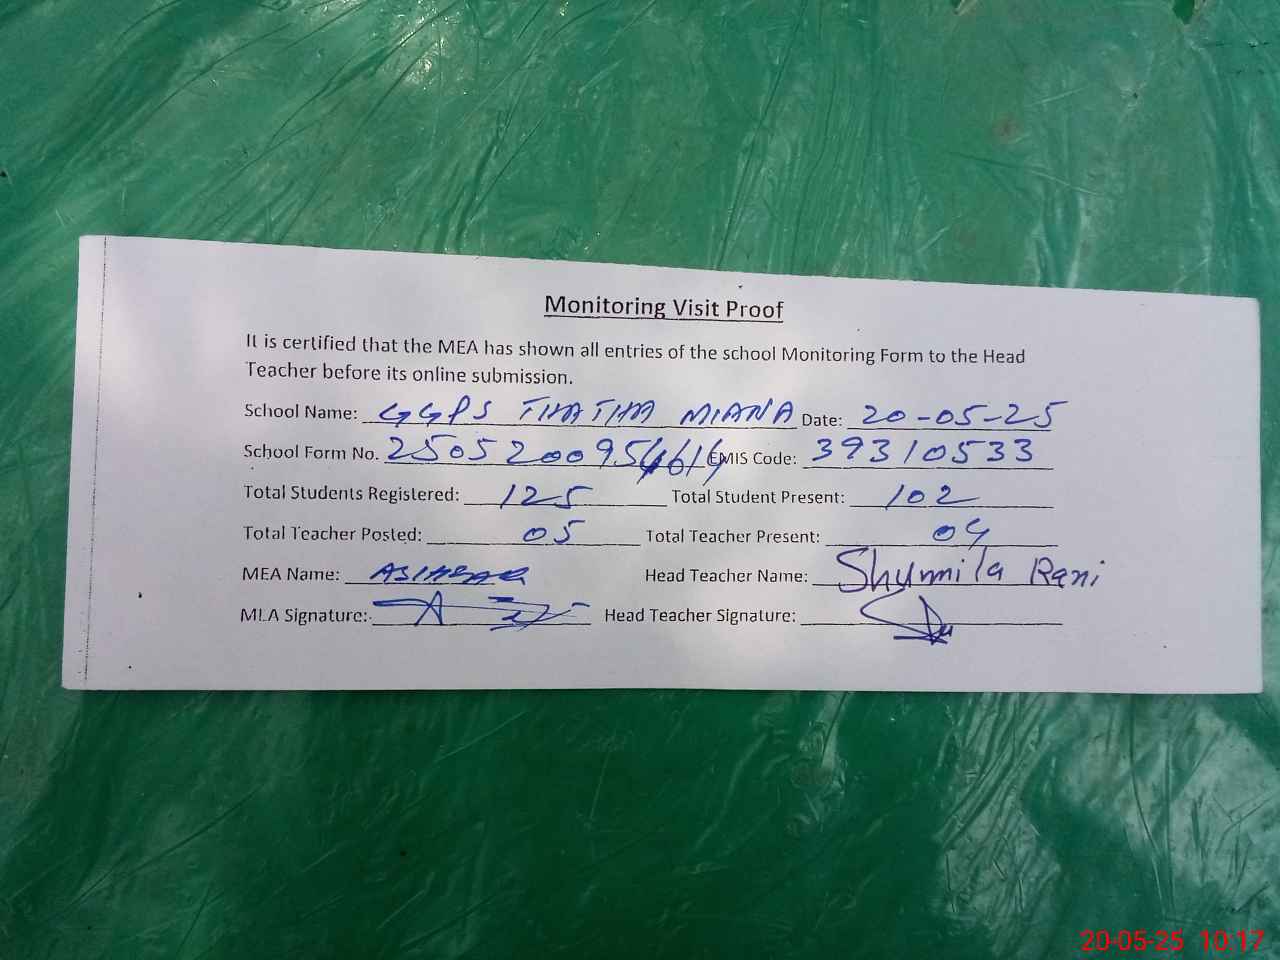 Monitoring Visit Proof
It is certified that the MEA has shown all entries of the school Monitoring Form to the Head
Teacher before its online submission.
School Name: GGPS THATHA MIANA Date: 20-05-25
School Form No. EMIS Code: 39310533
Total Students Registered: 125 Total Student Present: 102
Total Teacher Posted: 05 Total Teacher Present: 04
MEA Name: Head Teacher Name: Shumila Rani
MEA Signature: Head Teacher Signature:
20-05-25 10:17